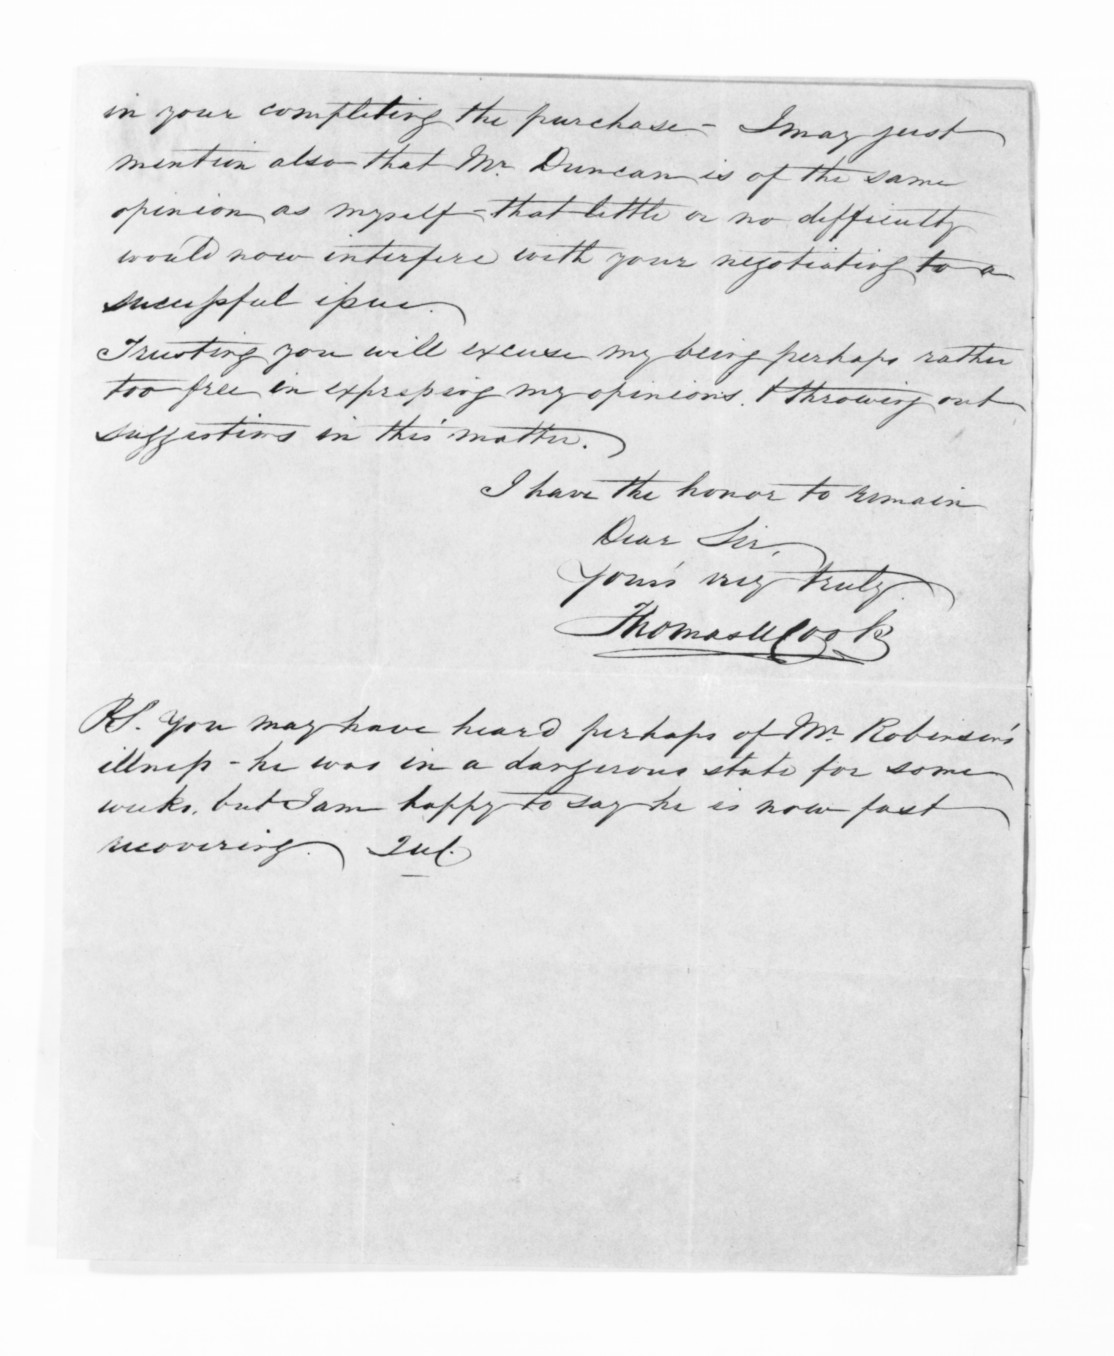 in your completing the purchase - I may just
mention also that Mr. Duncan is of the same
opinion as myself that little or no difficulty
would now interfere with your negotiating to a
successful issue.
Trusting you will excuse my being perhaps rather
too free in expressing my opinions. & throwing out
suggestions in this matter.
I have the honor to remain
Dear Sir,
Your's very truly
Thomas Cook
P.S. You may have heard perhaps of Mr. Robinson's
illness - he was in a dangerous state for some
weeks. but I am happy to say he is now fast
recovering.